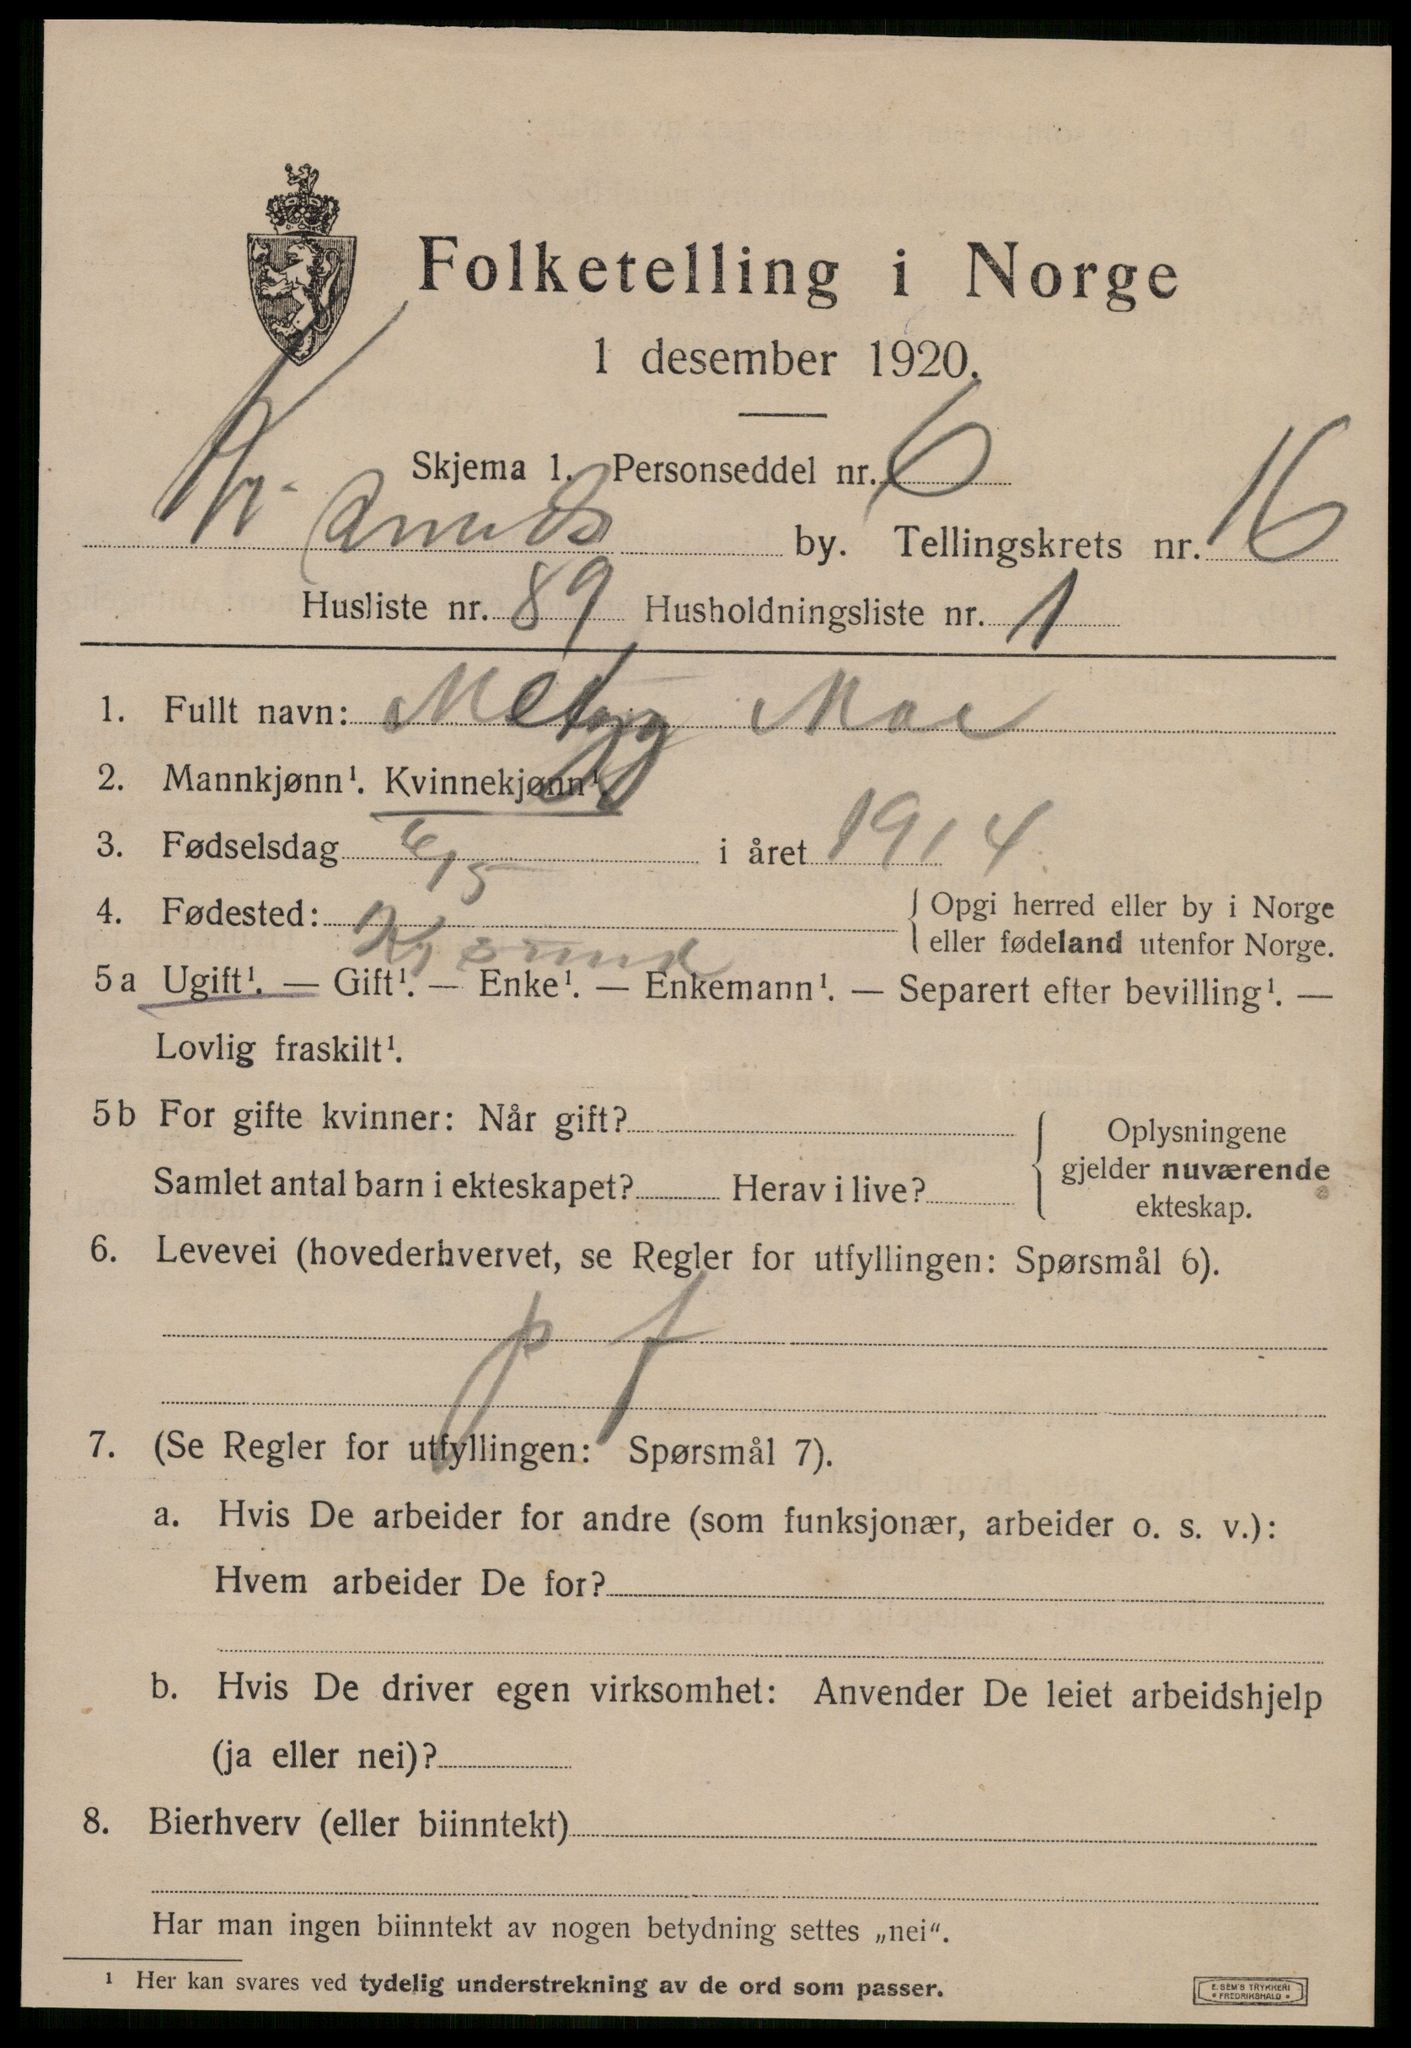 Folketelling i Norge
1 desember 1920.
Skjema 1. Personseddel nr. 6
by. Tellingskrets nr. 16
Husliste nr. 89 Husholdningsliste nr. 1
1. Fullt navn: Moe
2. Mannkjønn¹. Kvinnekjønn¹.
3. Fødselsdag 6/5 i året 1914
4. Fødested: Kr sund { Opgi herred eller by i Norge
eller fødeland utenfor Norge.
5 a Ugift¹. — Gift¹. — Enke¹. — Enkemann¹. — Separert efter bevilling¹. —
Lovlig fraskilt¹.
5 b For gifte kvinner: Når gift?
Samlet antal barn i ekteskapet? Herav i live?
Oplysningene
gjelder nuværende
ekteskap.
6. Levevei (hovederhvervet, se Regler for utfyllingen: Spørsmål 6).
p f
7. (Se Regler for utfyllingen: Spørsmål 7).
a. Hvis De arbeider for andre (som funksjonær, arbeider o. s. v.):
Hvem arbeider De for?
b. Hvis De driver egen virksomhet: Anvender De leiet arbeidshjelp
(ja eller nei)?
8. Bierhverv (eller biinntekt)
Har man ingen biinntekt av nogen betydning settes „nei“.
¹ Her kan svares ved tydelig understrekning av de ord som passer.
E. SEM'S TRYKKERI
• FREDRIKSHALD •